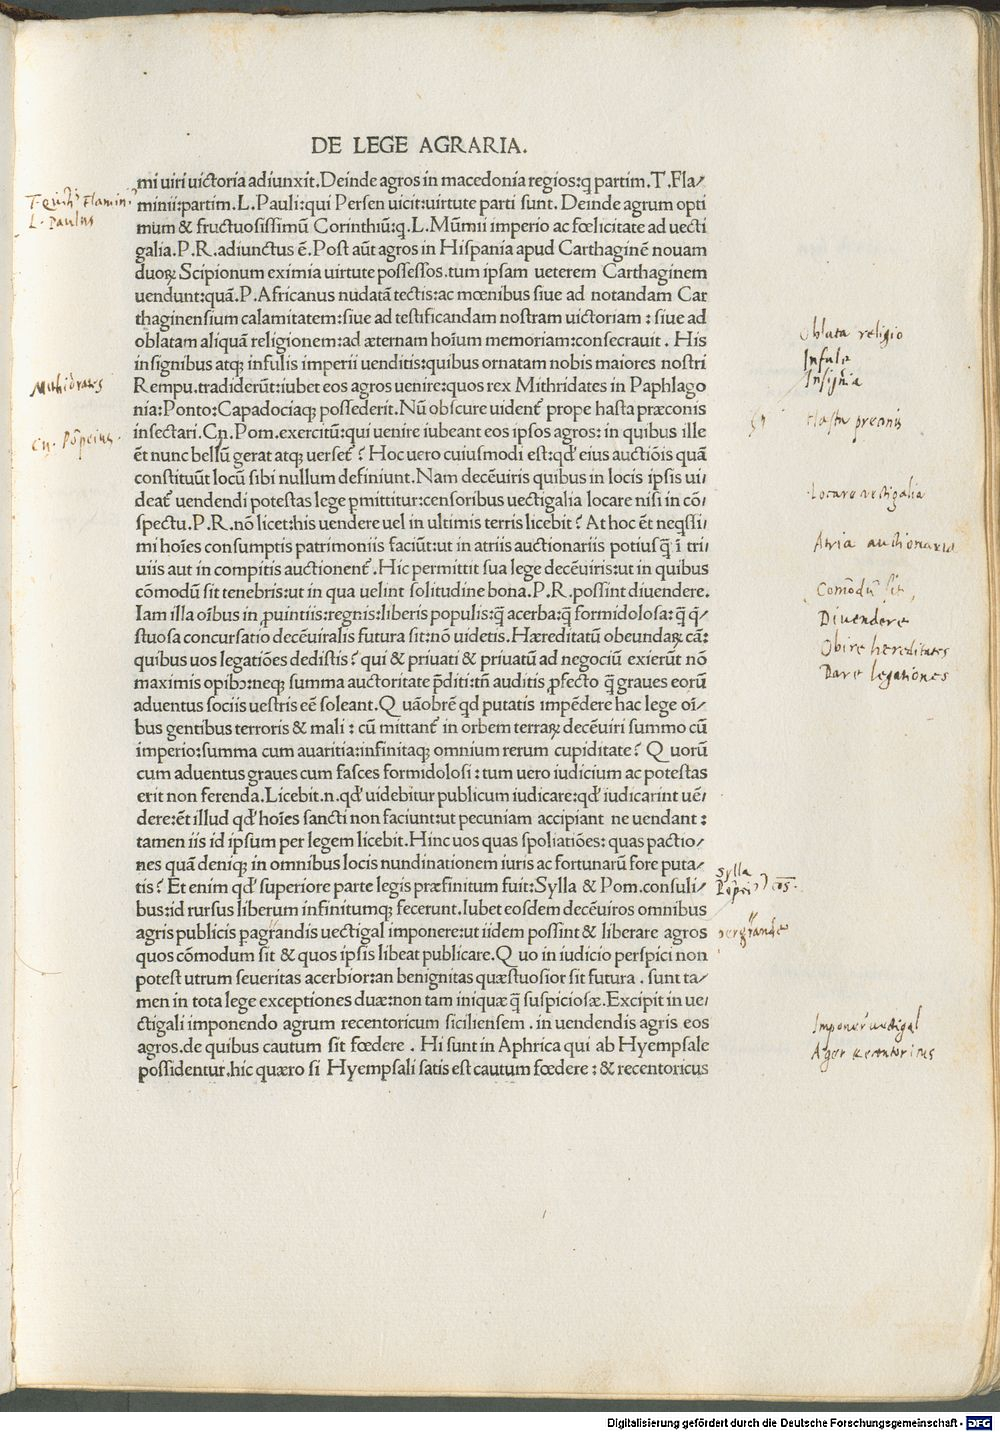 DE LEGE AGRARIA.
mi uiri uictoria adiunxit.Deinde agros in macedonia regios:q partim.T.Fla-
minii:partim.L.Pauli:qui Persen uicit:uirtute parti sunt. Deinde agrum opti
mum & fructuosissimū Corinthiū:q.L.Mūmii imperio ac fœlicitate ad uecti
galia.P.R.adiunctus ē.Post aūt agros in Hispania apud Carthaginē nouam
duoꝝ Scipionum eximia uirtute possessos.tum ipsam ueterem Carthaginem
uendunt:quā.P.Africanus nudatā tectis:ac mœnibus siue ad notandam Car
thaginensium calamitatem:siue ad testificandam nostram uictoriam : siue ad
oblatam aliquā religionem:ad æternam hoīum memoriam:consecrauit . His
insignibus atqꝫ infulis imperii uenditis:quibus ornatam nobis maiores nostri
Rempu.tradiderūt:iubet eos agros uenire:quos rex Mithridates in Paphlago
nia:Ponto:Capadociaqꝫ possederit. Nū obscure uident᷑ prope hasta præconis
insectari.Cn.Pom.exercitū:qui uenire iubeant eos ipsos agros: in quibus ille
ēt nunc bellū gerat atqꝫ uerset᷑? Hoc uero cuiusmodi est:qd' eius auctiōis quā
constituūt locū sibi nullum definiunt. Nam decēuiris quibus in locis ipsis ui/
deat᷑ uendendi potestas lege ꝑmittitur:censoribus uectigalia locare nisi in cō/
spectu.P.R.nō licet:his uendere uel in ultimis terris licebit? At hoc ēt neqssi/
mi hoīes consumptis patrimoniis faciūt:ut in atriis auctionariis potius q̄ ī tri/
uiis aut in compitis auctionent᷑.Hic permittit sua lege decēuiris:ut in quibus
cōmodū sit tenebris:ut in qua uelint solitudine bona.P.R.possint diuendere.
Iam illa oībus in ꝓuintiis:regnis:liberis populis:q̄ acerba:q̄ formidolosa: q̄ q̊/
stuosa concursatio decēuiralis futura sit:nō uidetis.Hæreditatū obeundaꝝ cā:
quibus uos legatiōes dedistis? qui & priuati & priuatū ad negociū exierūt nō
maximis opibꝰ:neqꝫ summa auctoritate p̄diti:tn̄ auditis ꝓfecto q̄ graues eorū
aduentus sociis uestris eē soleant.Q uāobrē qd putatis impēdere hac lege oī/
bus gentibus terroris & mali : cū mittant᷑ in orbem terraꝝ decēuiri summo cū
imperio:summa cum auaritia:infinitaqꝫ omnium rerum cupiditate? Q uorū
cum aduentus graues cum fasces formidolosi : tum uero iudicium ac potestas
erit non ferenda.Licebit.n.qd' uidebitur publicum iudicare:qd' iudicarint uē/
dere:ēt illud qd' hoīes sancti non faciunt:ut pecuniam accipiant ne uendant :
tamen iis id ipsum per legem licebit.Hinc uos quas spoliatiōes: quas pactio/
nes quā deniqꝫ in omnibus locis nundinationem iuris ac fortunarū fore puta-
tis? Et enim qd' superiore parte legis præfinitum fuit:Sylla & Pom.consuli/
bus:id rursus liberum infinitumqꝫ fecerunt.Iubet eosdem decēuiros omnibus
agris publicis pagrandis uectigal imponere:ut iidem possint & liberare agros
quos cōmodum sit & quos ipsis libeat publicare.Q uo in iudicio perspici non
potest utrum seueritas acerbior:an benignitas quæstuosior sit futura . sunt ta-
men in tota lege exceptiones duæ:non tam iniquæ q̄ suspiciosæ.Excipit in ue/
ctigali imponendo agrum recentoricum siciliensem . in uendendis agris eos
agros.de quibus cautum sit fœdere . Hi sunt in Aphrica qui ab Hyempsale
possidentur.hic quæro si Hyempsali satis est cautum fœdere : & recentoricus
L. Paulus
Mithidrates
Cn. Pōpeius.
Oblata religio
Infule
Insignia
Hasta preconis
Locare vectigalia
Atria auctionaria
Comōdū sit
Diuendere
Obire hereditates
Dare legationes
Sylla
Pōpei
cos.
pergrande
Imponere vectigal
Ager recentoricus
Digitalisierung gefördert durch die Deutsche Forschungsgemeinschaft - DFG